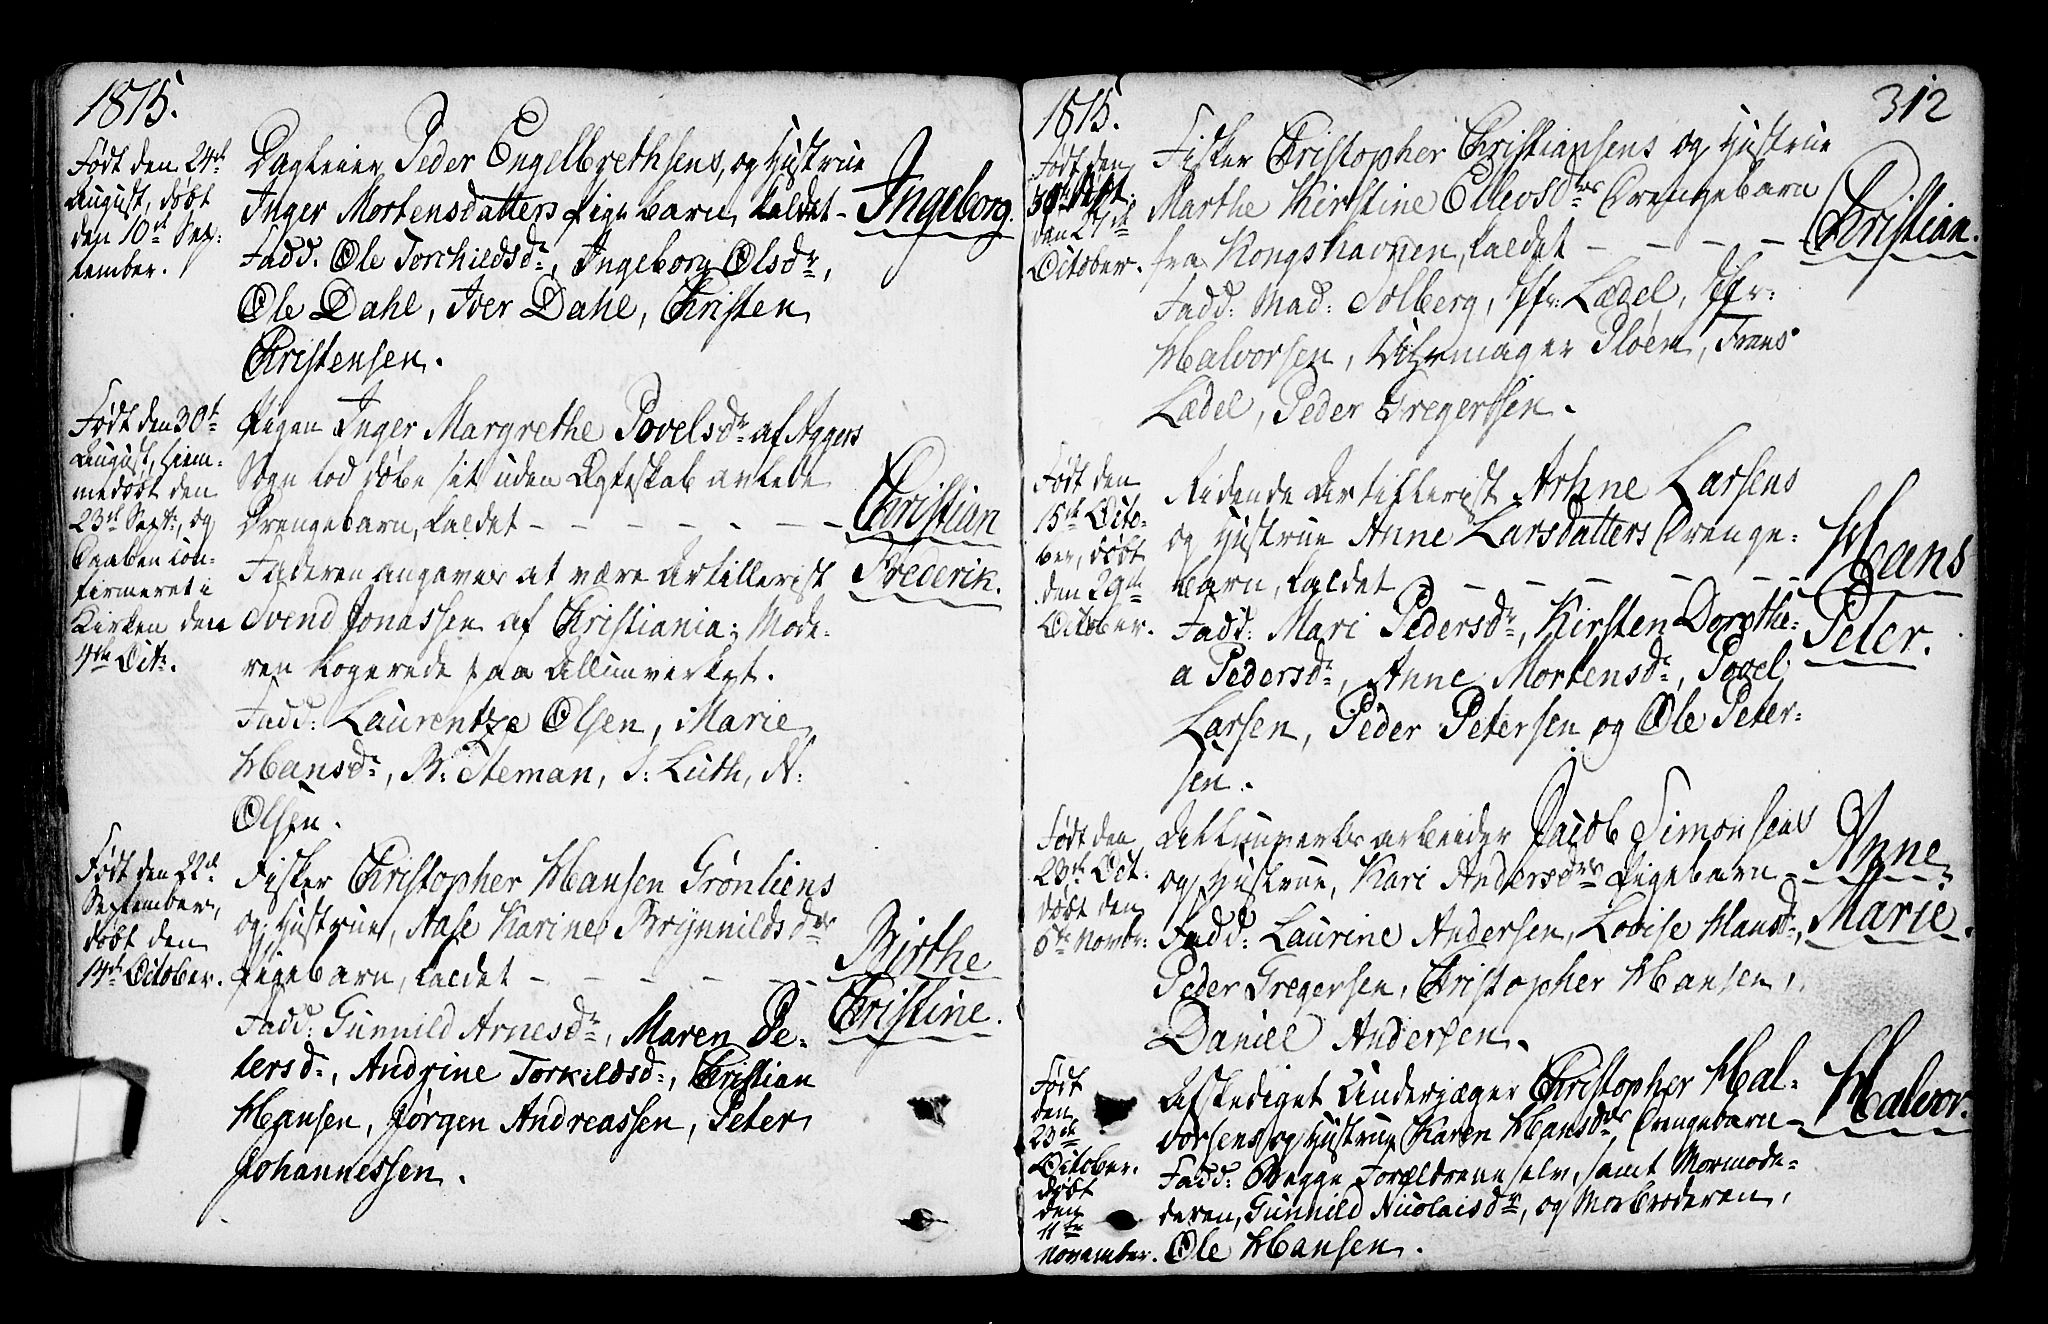 1815.
Født den 24de
August, døbt
den 10de Sep:
tember.
Dagleier Peder Engelbrethsens, og Hustrue
Inger Mortensdatters Pigebarn kaldet –
Ingeborg.
Fadd. Ole Torchildsdr, Ingeborg Olsdr,
Ole Dahl, Iver Dahl, Christen
Christensen.
Født den 30te
August, hiem-
medøbt den
23de Septr, og
Daaben con-
firmeret i
Kirken den
4de Octr.
Pigen Inger Margrethe Povelsdr af Aggers
Sogn lod døbe sit uden Ægteskab avlede
Drengebarn, kaldet – – – – – – –
Christian
Frederik.
Faderen angaves at være Artillerist
Svend Jonassen af Christiania; Mode-
ren logerede paa Allunverket.
Fadd: Laurentze Olsen, Marie
Hansdr, B: Steman, S: Luth, N:
Olsen.
Født den 22de
September,
døbt den
14de October.
Fisker Christopher Hansen Grønliens
og Hustrue, Aase Karine Brynnildsdrs
Pigebarn, kaldet – – – – – –
Birthe
Christine.
Fadd: Gunnild Arnesdr, Maren Pe-
tersdr, Andrine Torkildsdr, Christian
Hansen, Jørgen Andreassen, Peter
Johannessen.
1815.
312
Født den
døbt
den 27de
October.
Fisker Christopher Christiansens og Hustrue
Marthe Kirstine Ellevsdrs Drengebarn
fra Kongshavnen, kaldet – – – –
Christian.
Fadd: Mad: Solberg, Jfr: Lædel, Jfr:
Halvorsen, Uhrmager Pløen, Frans
Lædel, Peder Gregerssen.
Født den
15de Octo-
ber, døbt
den 29de
October.
Ridende Artillerist Arhne Larsens
og Hustrue Anne Larsdatters Drenge-
barn, kaldet – – – – – –
Hans
Peter.
Fadd: Mari Pedersdr, Kirsten Dorothe-
a Pedersdr, Anne Mortensdr, Povel
Larsen, Peder Petersen og Ole Peter-
sen.
Født den
23de Oct.
døbt den
5te Novbr:
Allunverks arbeider Jacob Simonsens
og Hustrue, Kari Andersdrs Pigebarn –
Anne
Marie.
Fadd: Laurine Andersen, Lovise Hansdr,
Peder Gregersen, Christopher Hansen,
Daniel Andersen.
Født
den
23de
October.
døbt
den
11te
November.
Afskediget Underjæger Christopher Hal-
vorsens og Hustrue Karen Hansdrs, Drengebarn –
Halvor.
Fadd: Begge Forældrene selv, samt Mormode-
deren, Gunnild Nicolaisdr, og Morbroderen,
Ole Hansen.